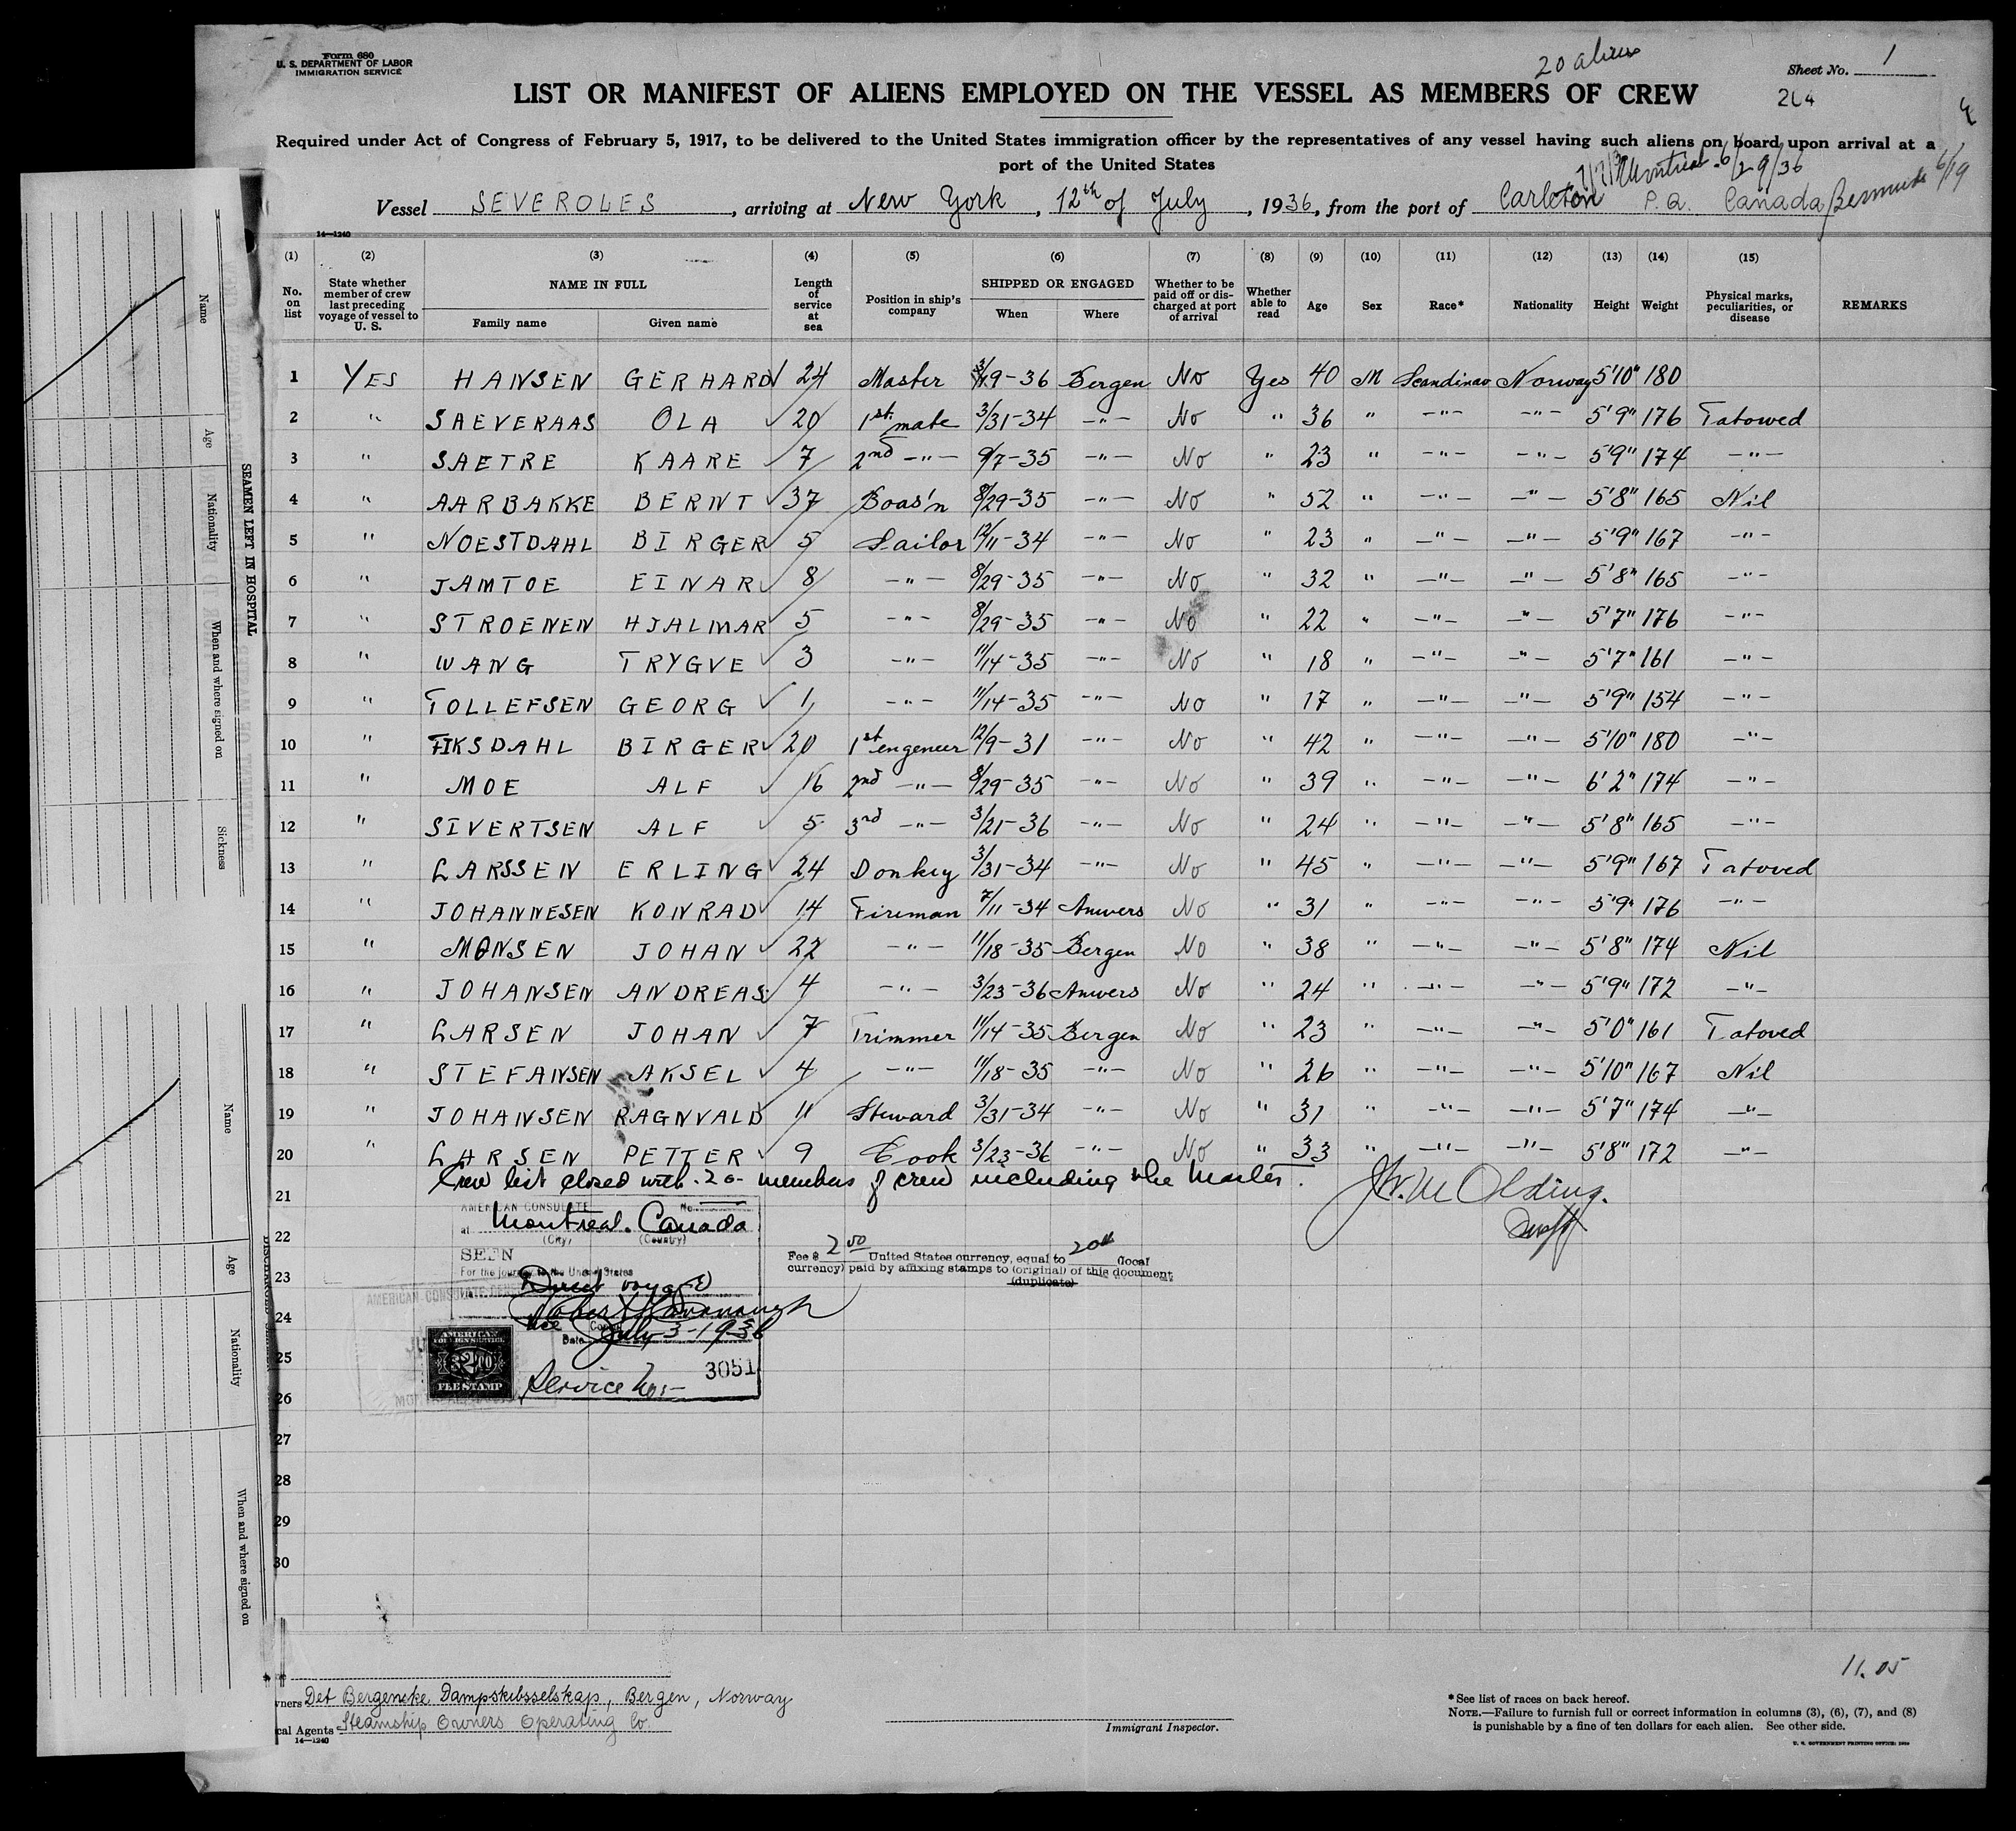 Form 680
U. S. DEPARTMENT OF LABOR
IMMIGRATION SERVICE
20 aliens
Sheet No. 1
LIST OR MANIFEST OF ALIENS EMPLOYED ON THE VESSEL AS MEMBERS OF CREW
264
Required under Act of Congress of February 5, 1917, to be delivered to the United States immigration officer by the representatives of any vessel having such aliens on board upon arrival at a
port of the United States
Montreal 6/29/36
Vessel SEVEROLES, arriving at New York, 12th of July, 1936, from the port of Carleton P.Q. Canada Bermuda 6/19
14—1240
(1) (2) (3) (4) (5) (6) (7) (8) (9) (10) (11) (12) (13) (14) (15)
No. on list State whether member of crew last preceding voyage of vessel to U. S. NAME IN FULL Family name Given name Length of service at sea Position in ship's company SHIPPED OR ENGAGED When Where Whether to be paid off or discharged at port of arrival Whether able to read Age Sex Race* Nationality Height Weight Physical marks, peculiarities, or disease REMARKS
1 YES HANSEN GERHARD 24 Master 9-36 Bergen No Yes 40 M Scandinav Norway 5'10" 180
2 " SAEVERAAS OLA 20 1st mate 3/31-34 -"- No " 36 " -"- -"- 5'9" 176 Tatowed
3 " SAETRE KAARE 7 2nd -"- 9/7-35 -"- No " 23 " -"- -"- 5'9" 174 -"-
4 " AARBAKKE BERNT 37 Boas'n 8/29-35 -"- No " 52 " -"- -"- 5'8" 165 Nil
5 " NOESTDAHL BIRGER 5 Sailor 12/11-34 -"- No " 23 " -"- -"- 5'9" 167 -"-
6 " JAMTOE EINAR 8 -"- 8/29-35 -"- No " 32 " -"- -"- 5'8" 165 -"-
7 " STROENEN HJALMAR 5 -"- 8/29-35 -"- No " 22 " -"- -"- 5'7" 176 -"-
8 " WANG TRYGVE 3 -"- 11/14-35 -"- No " 18 " -"- -"- 5'7" 161 -"-
9 " TOLLEFSEN GEORG 1 -"- 11/14-35 -"- No " 17 " -"- -"- 5'9" 154 -"-
10 " FIKSDAHL BIRGER 20 1st engeneer 12/9-31 -"- No " 42 " -"- -"- 5'10" 180 -"-
11 " MOE ALF 16 2nd -"- 8/29-35 -"- No " 39 " -"- -"- 6'2" 174 -"-
12 " SIVERTSEN ALF 5 3rd -"- 3/21-36 -"- No " 24 " -"- -"- 5'8" 165 -"-
13 " LARSSEN ERLING 24 Donkey 3/31-34 -"- No " 45 " -"- -"- 5'9" 167 Tatoved
14 " JOHANNESEN KONRAD 14 Fireman 7/11-34 Anvers No " 31 " -"- -"- 5'9" 176 -"-
15 " MONSEN JOHAN 22 -"- 11/18-35 Bergen No " 38 " -"- -"- 5'8" 174 Nil
16 " JOHANSEN ANDREAS 4 -"- 3/23-36 Anvers No " 24 " -"- -"- 5'9" 172 -"-
17 " LARSEN JOHAN 7 Trimmer 11/14-35 Bergen No " 23 " -"- -"- 5'0" 161 Tatoved
18 " STEFANSEN AKSEL 4 -"- 11/18-35 -"- No " 26 " -"- -"- 5'10" 167 Nil
19 " JOHANSEN RAGNVALD 11 Steward 3/31-34 -"- No " 31 " -"- -"- 5'7" 174 -"-
20 " LARSEN PETTER 9 Cook 3/23-36 -"- No " 33 " -"- -"- 5'8" 172 -"-
Crew list closed with -20- members of crew including the Master.
21
22
23
24
25
26
27
28
29
30
AMERICAN CONSULATE No.
at Montreal. Canada
(City) (Country)
SEEN
For the journey to the United States
Direct voyage
Vice Consul
Date July 3-1936
AMERICAN FOREIGN SERVICE
FEE STAMP
Service No. 3051
Fee $ 2.00 United States currency, equal to 2.00 (local
currency) paid by affixing stamps to (original) of this document
(duplicate)
11.05
Owners Det Bergenske Dampskibsselskap, Bergen, Norway
Local Agents Steamship Owners Operating Co.
14—1240
Immigrant Inspector.
*See list of races on back hereof.
NOTE.—Failure to furnish full or correct information in columns (3), (6), (7), and (8)
is punishable by a fine of ten dollars for each alien. See other side.
U. S. GOVERNMENT PRINTING OFFICE
SEAMEN LEFT IN HOSPITAL
Name Age Nationality When and where signed on Sickness
Name Age Nationality When and where signed on